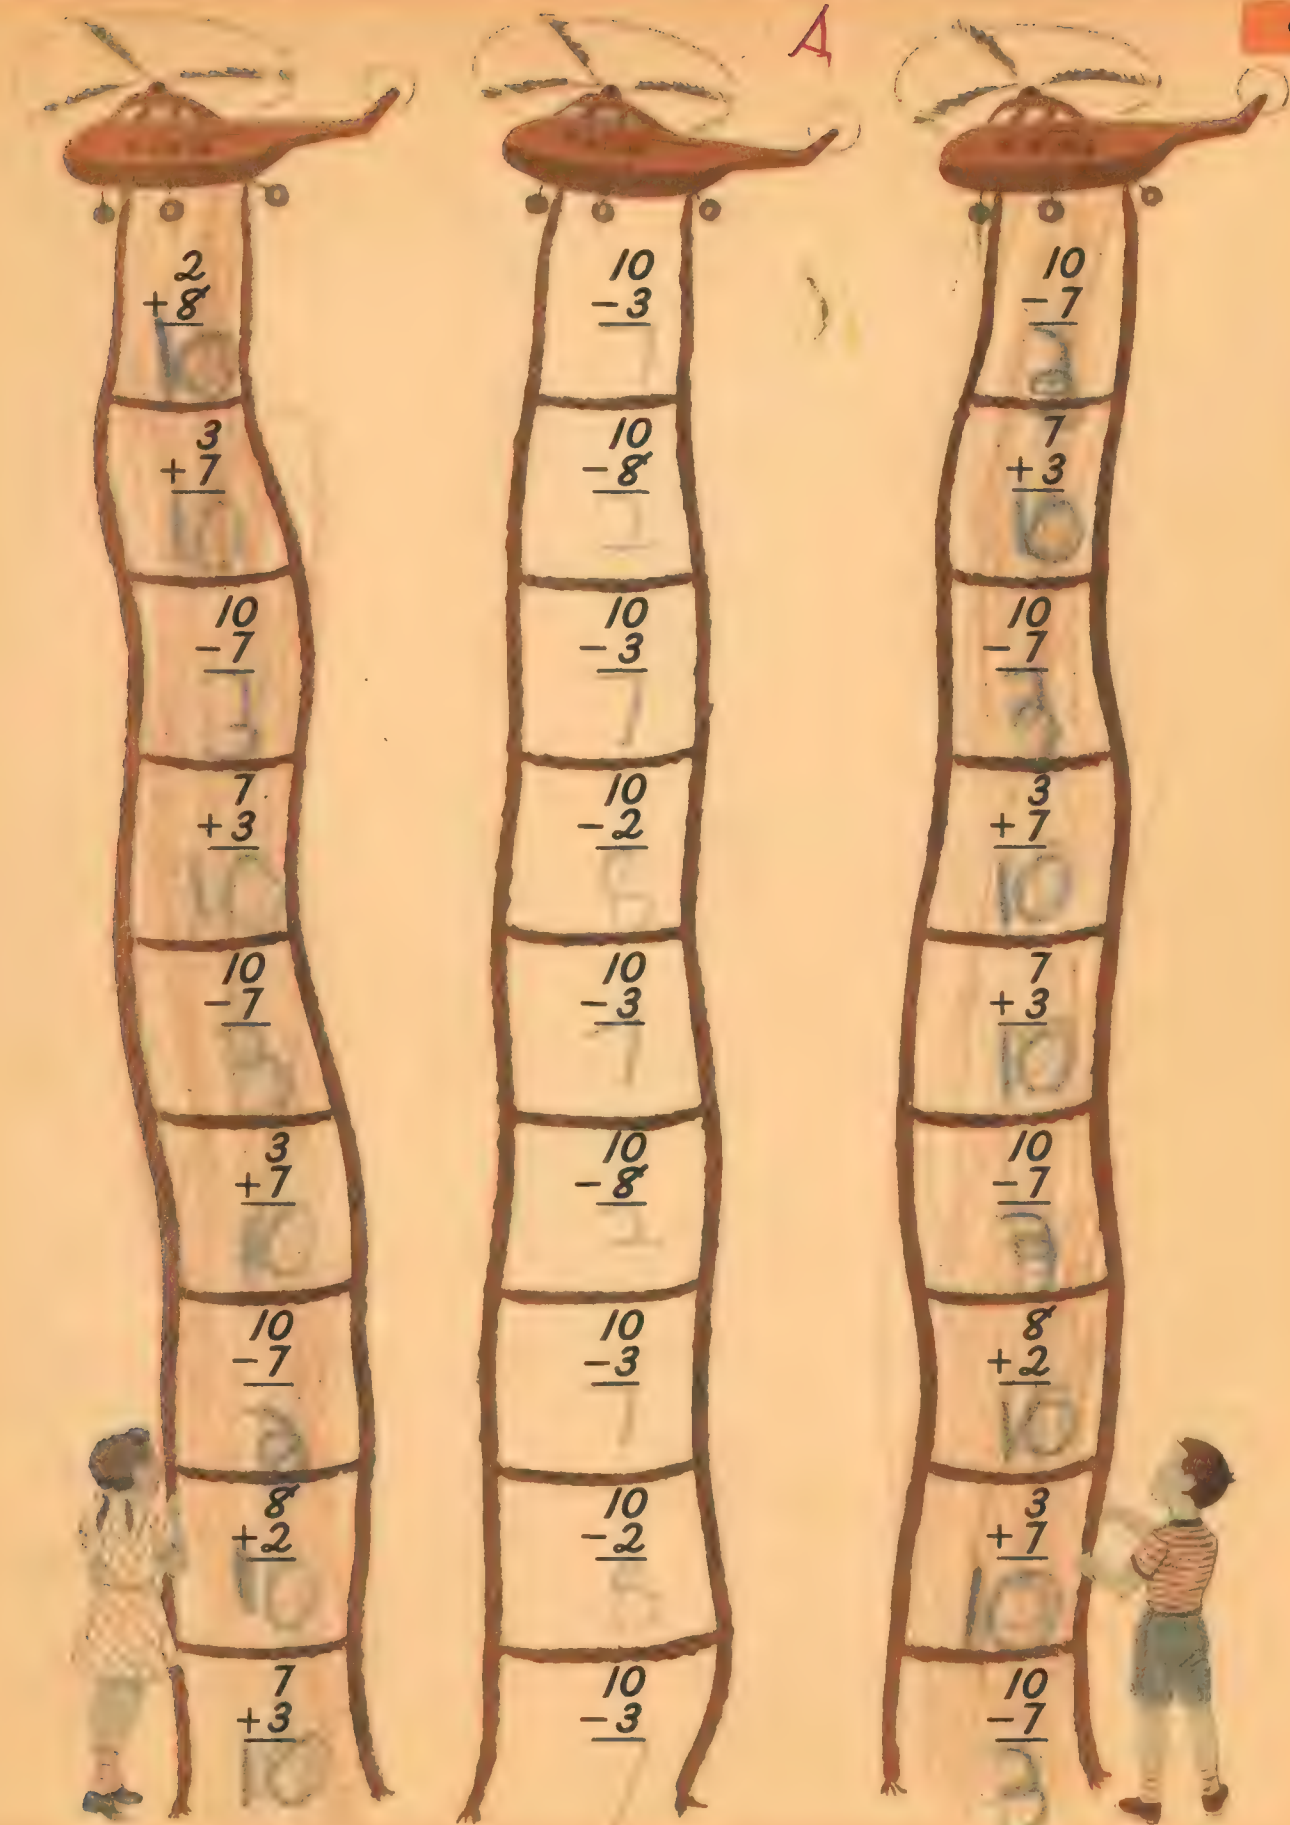 A
2
+8
10
3
+7
10
10
-7
3
7
+3
10
10
-7
3
3
+7
10
10
-7
8
+2
10
7
+3
10
10
-3
7
10
-8
2
10
-3
7
10
-2
10
-3
7
10
-8
2
10
-3
7
10
-2
8
10
-3
7
10
-7
3
7
+3
10
10
-7
3
3
+7
10
7
+3
10
10
-7
3
8
+2
10
3
+7
10
10
-7
3